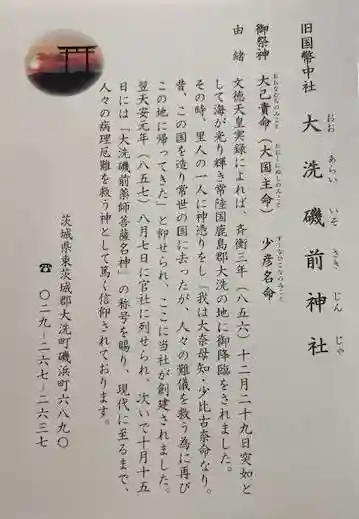 旧国幣中社
大洗磯前神社
おお あらい いそ さき じん じゃ
御祭神 大己貴命(大国主命) 少彦名命
おおなむちのみこと おおくにぬしのみこと すくなひこなのみこと
由緒 文徳天皇実録によれば、斉衡三年(八五六)十二月二十九日突如と
して海が光り輝き常陸国鹿島郡大洗の地に御降臨をされました。
その時、里人の一人に神憑りをし『我は大奈母知・少比古奈命なり。
昔、この国を造り常世の国に去ったが、人々の難儀を救う為に再び
この地に帰ってきた』と仰せられ、ここに当社が創建されました。
翌天安元年(八五七)八月七日に官社に列せられ、次いで十月十五
日には『大洗磯前薬師菩薩名神』の称号を賜り、現代に至るまで、
人々の病理厄難を救う神として篤く信仰されております。
茨城県東茨城郡大洗町磯浜町六八九〇
☎ 〇二九-二六七-二六三七